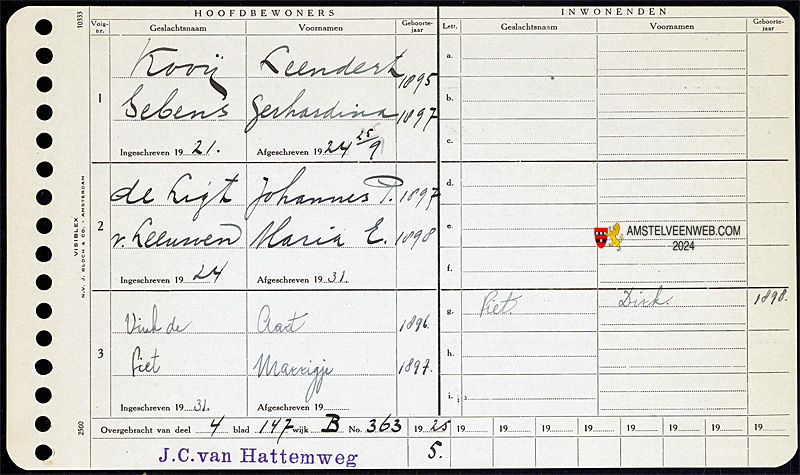 HOOFDBEWONERS INWONENDEN
Volg- nr. Geslachtsnaam Voornamen Geboorte- jaar Lett. Geslachtsnaam Voornamen Geboorte- jaar
10333
1 Kooij Leendert 1895
Gebens Gerhardina 1897
Ingeschreven 19 21. Afgeschreven 19 24 25/9
a.
b.
c.
2 de Ligt Johannes P. 1897
v. Leeuwen Maria E. 1898
Ingeschreven 19 24 Afgeschreven 19 31.
d.
e.
f.
AMSTELVEENWEB.COM
2024
3 Vink de Aart 1896
Piet Marrigje 1897.
Ingeschreven 19 31. Afgeschreven 19
g. Piet. Dirk. 1898.
h.
i.
VISIBLEX
N.V. J. BLOCH & CO. - AMSTERDAM
2500
Overgebracht van deel 4 blad 147 wijk B No. 363 19 25 19 19 19 19 19 19 19 19
J.C. van Hattemweg 5.